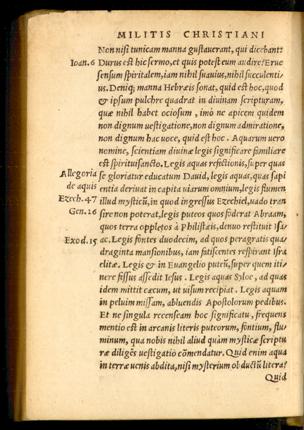 MILITIS CHRISTIANI
Non nisi tunicam manna gustauerant, qui dicebant:
Ioan. 6 Durus est hic sermo, et quis potest eum audire? Erue
sensum spiritalem, iam nihil suauius, nihil succulenti
us. Deniq; manna Hebræis sonat, quid est hoc, quod
& ipsum pulchre quadrat in diuinam scripturam,
quæ nihil habet ociosum, imò ne apicem quidem
non dignum uestigatione, non dignum admiratione,
non dignum hac uoce, quid est hoc. Aquarum uero
nomine, scientiam diuinæ legis significare familiare
est spirituisancto. Legis aquas refectionis, super quas
Allegoria se gloriatur educatum Dauid, legis aquas, quas sapi
de aquis entia deriuat in capita uiarum omnium, legis flumen
Ezech. 47 illud mysticũ, in quod ingressus Ezechiel, uado tran
Gen. 26 sire non poterat, legis puteos quos foderat Abraam,
quos terra oppletos à Philistæis, denuo restituit Isa-
Exod. 15 ac. Legis fontes duodecim, ad quos peragratis qua
draginta mansionibus, iam fatiscentes respirant Isra
elitæ. Legis & in Euangelio puteũ, super quem iti-
nere fissus assedit Iesus. Legis aquas Syloë, ad quas
idem mittit cæcum, ut uisum recipiat. Legis aquam
in peluim missam, abluendis Apostolorum pedibus.
Et ne singula recenseam hoc significatu, frequens
mentio est in arcanis literis puteorum, fontium, flu-
minum, qua nobis nihil aliud quàm mysticæ scriptu
ræ diligẽs uestigatio cõmendatur. Quid enim aqua
in terræ uenis abdita, nisi mysterium obductũ litera?
Quid